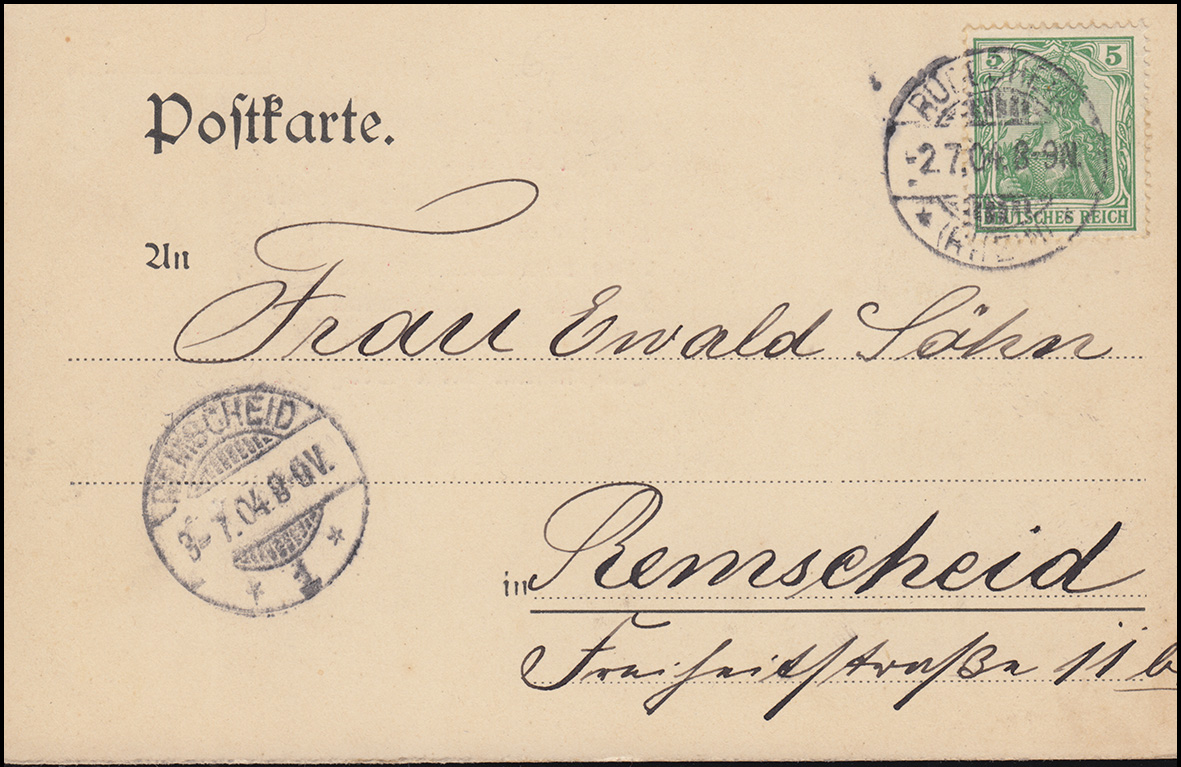 5 5
-2.7.04.8-9N.
DEUTSCHES REICH
Postkarte.
An
Frau Ewald Söhn
REMSCHEID
3.7.04.8-9V.
* 1 *
in Remscheid
Freiheitstraße 11 b